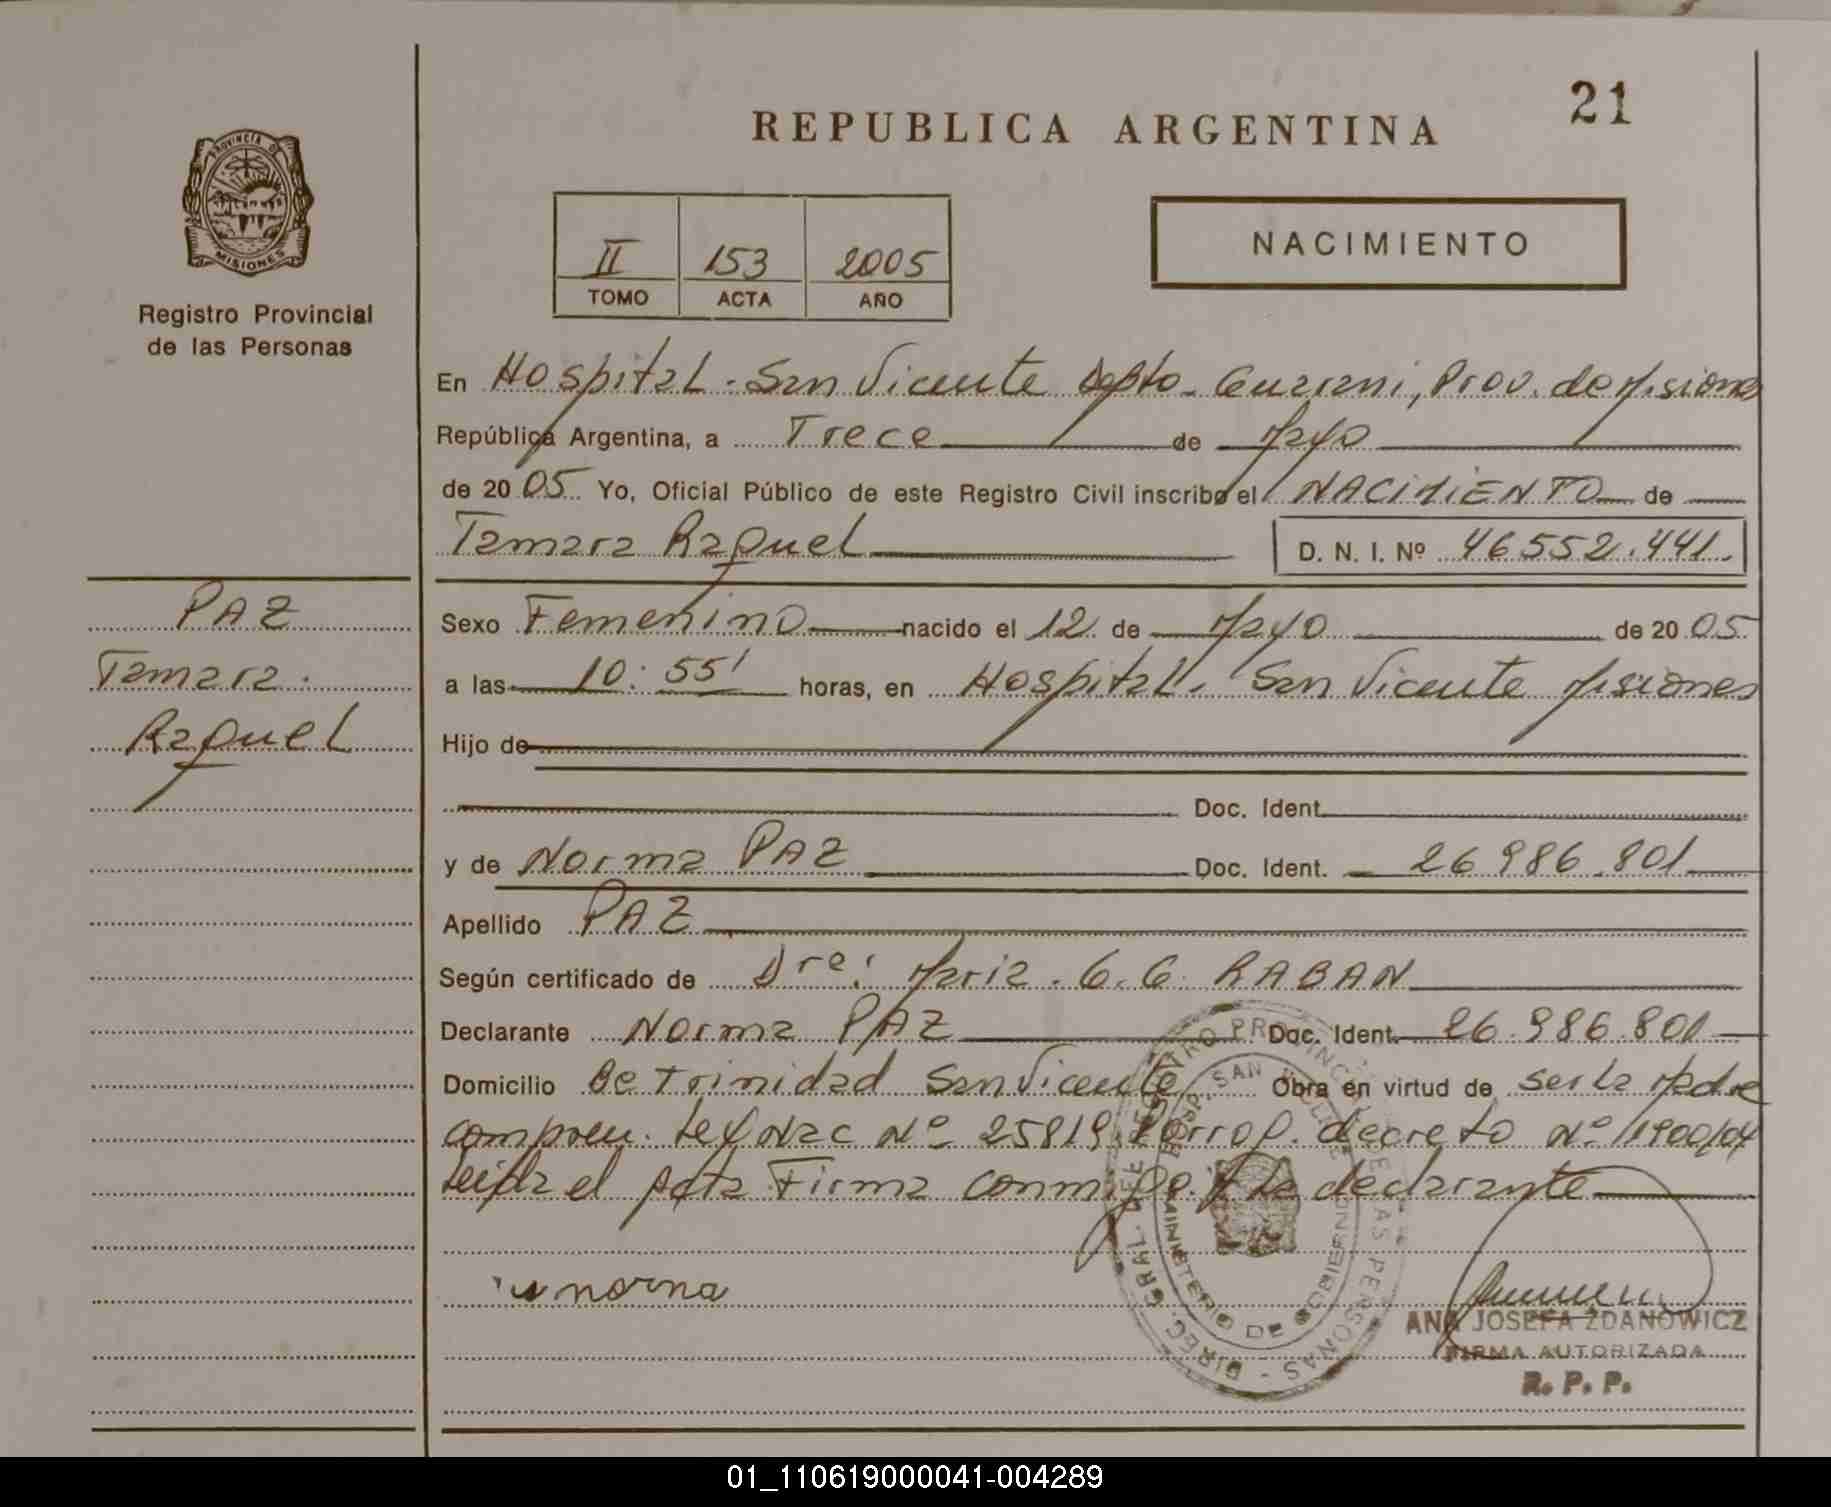 21
REPUBLICA ARGENTINA
PROVINCIA DE
MISIONES
Registro Provincial
de las Personas
II 153 2005
TOMO ACTA AÑO
NACIMIENTO
En Hospital - San Vicente Depto - Guarani, Prov. de Misiones
República Argentina, a Trece de Mayo
de 2005 Yo, Oficial Público de este Registro Civil inscribo el NACIMIENTO de
Tamara Raquel D. N. I. Nº 46552.441.
PAZ
Tamara.
Raquel
Sexo Femenino nacido el 12 de Mayo de 2005
a las 10:55' horas, en Hospital. San Vicente Misiones
Hijo de
Doc. Ident.
y de Norma PAZ Doc. Ident. 26 986.801
Apellido PAZ
Según certificado de Dra: Maria. G. G. RABAN
Declarante Norma PAZ Doc. Ident. 26.986.801
Domicilio Be Trinidad San Vicente Obra en virtud de ser la Madre
compren. Ley Nac Nº 25819. Porrog. decreto Nº 1900/04
Leida el Acta Firma conmigo. la declarante
norma
DIREC. GRAL. DEL REGISTRO PROVINCIAL DE LAS PERSONAS -
HOSP. SAN VICENTE
MINISTERIO DE GOBIERNO
ANA JOSEFA ZDANOWICZ
FIRMA AUTORIZADA
R. P. P.
01_110619000041-004289